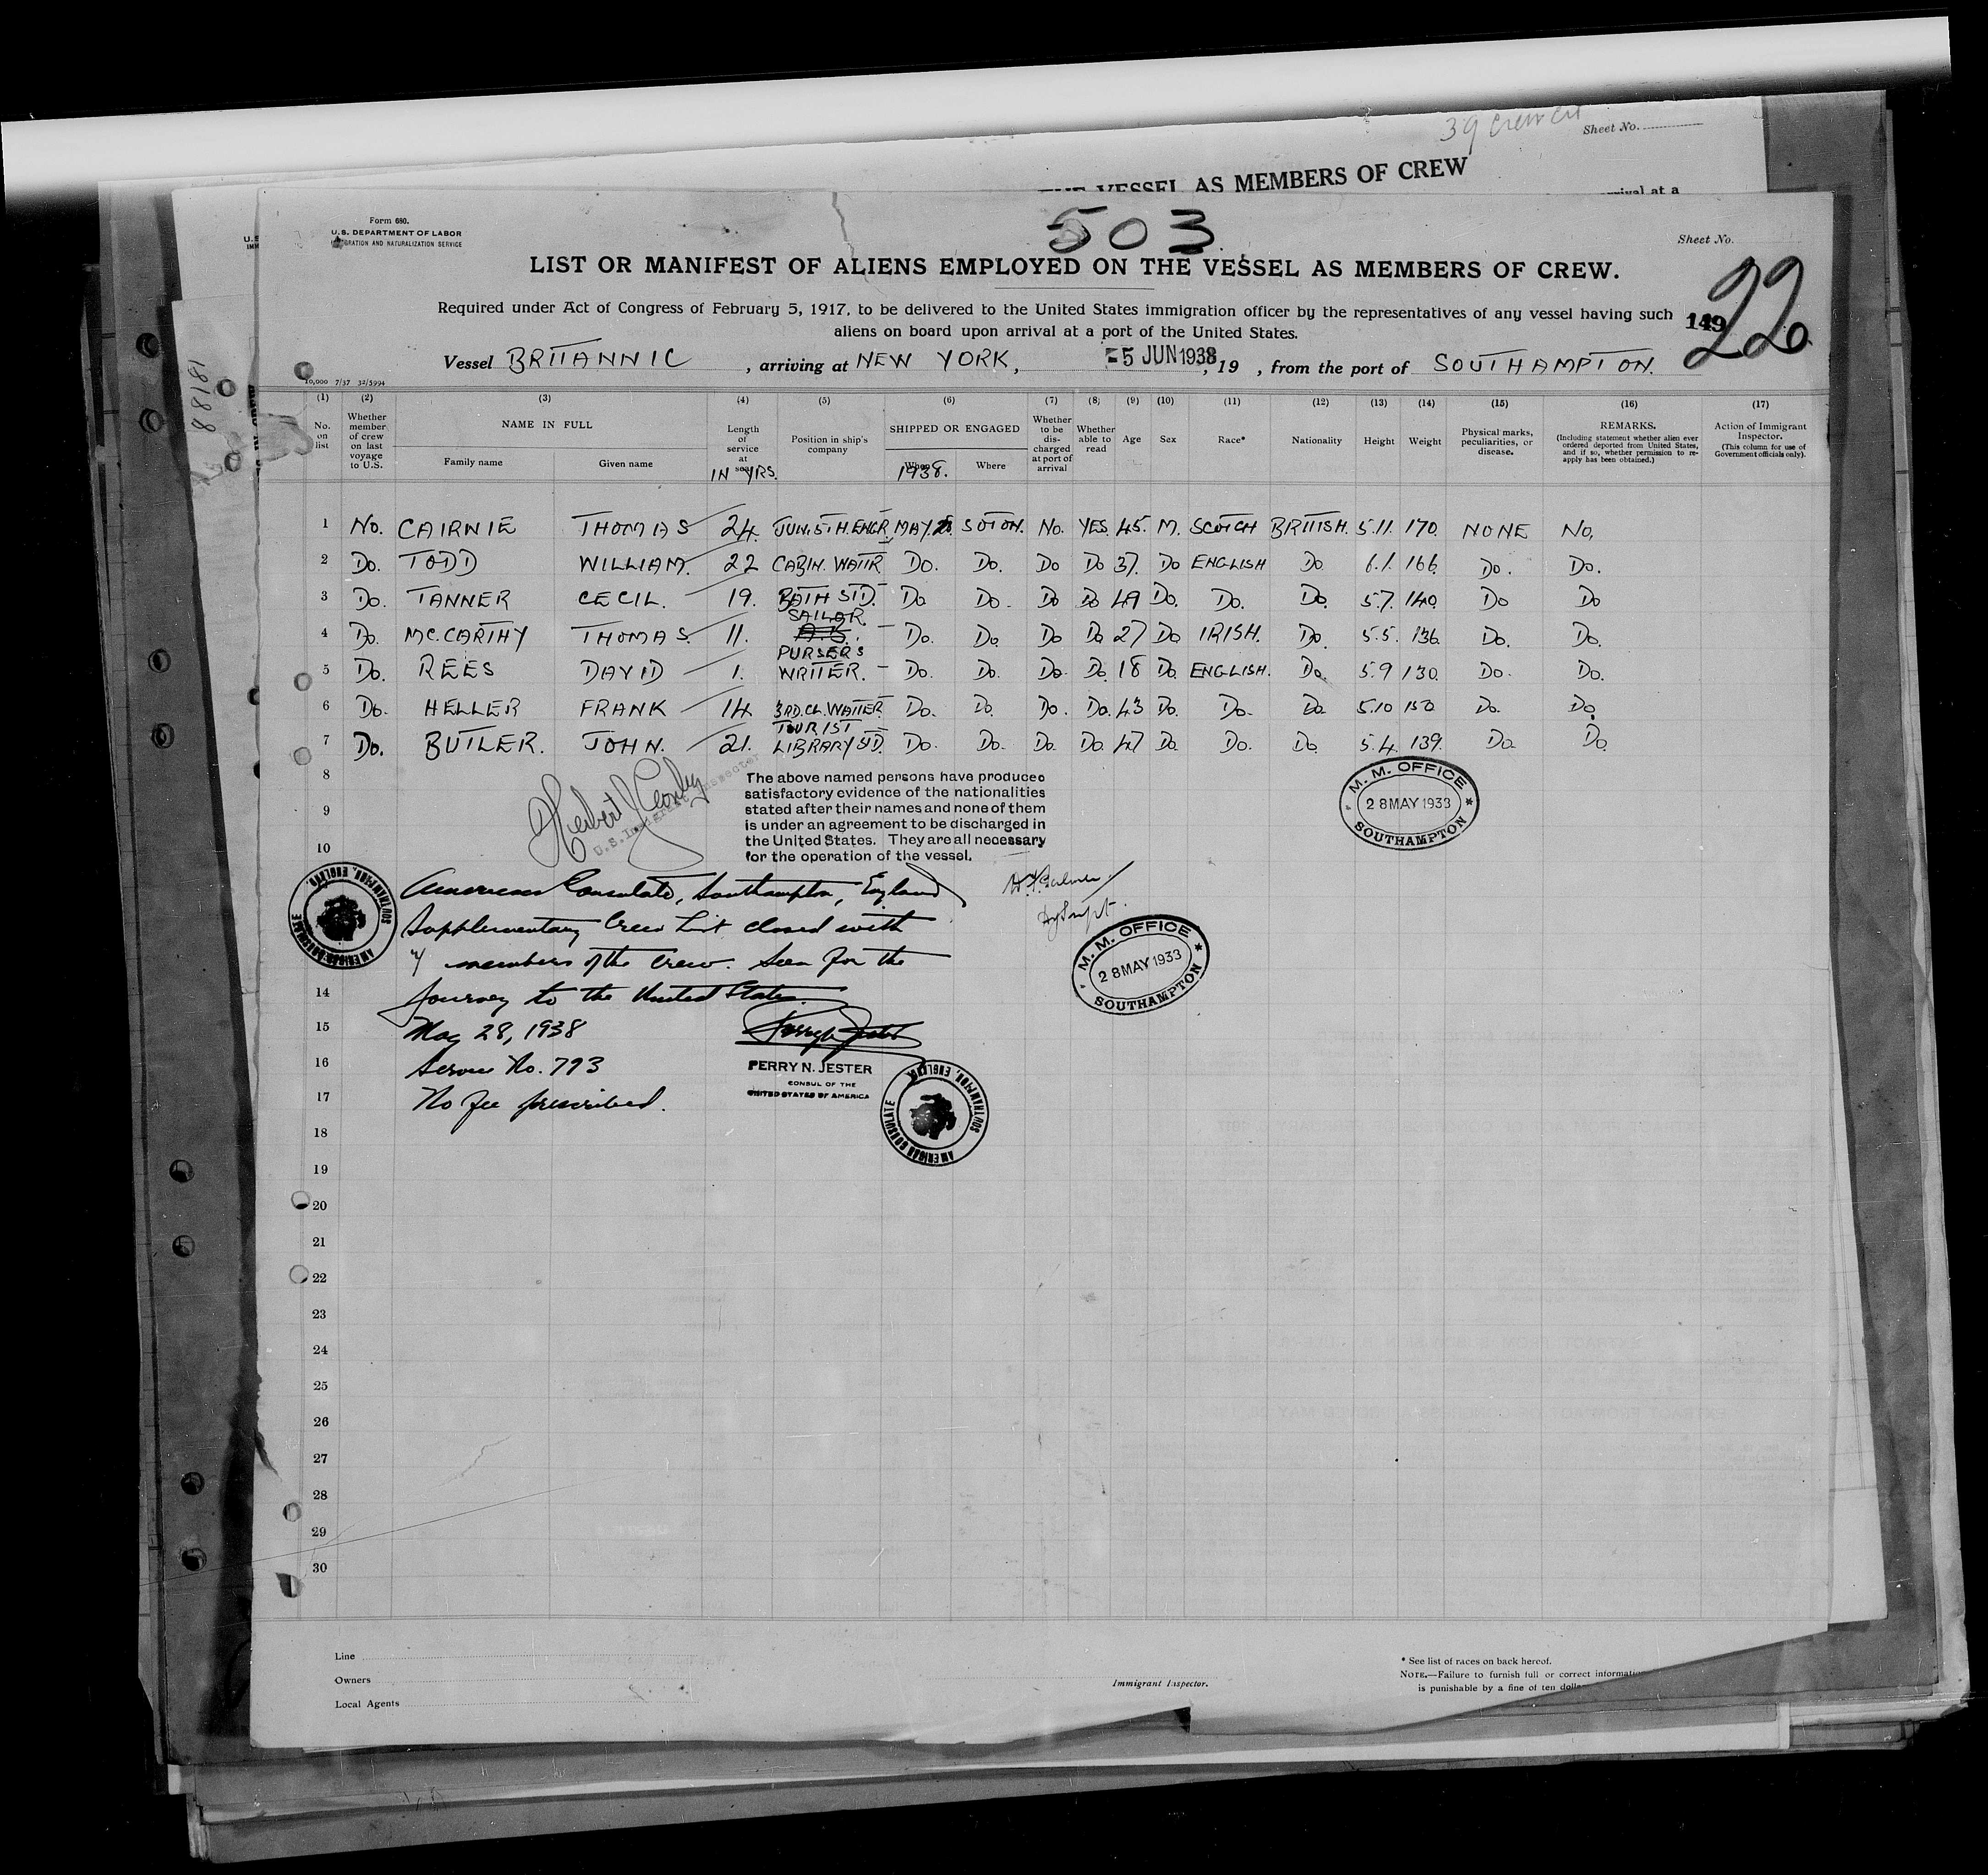 39 crew
Sheet No.
VESSEL AS MEMBERS OF CREW
arrival at a
Form 680.
U.S. DEPARTMENT OF LABOR
IMMIGRATION AND NATURALIZATION SERVICE
503
Sheet No.
LIST OR MANIFEST OF ALIENS EMPLOYED ON THE VESSEL AS MEMBERS OF CREW.
22
149
Required under Act of Congress of February 5, 1917, to be delivered to the United States immigration officer by the representatives of any vessel having such
aliens on board upon arrival at a port of the United States.
Vessel BRITANNIC, arriving at NEW YORK, -5 JUN 1938, 19 , from the port of SOUTHAMPTON.
10,000 7/37 32/5994
88181
(1) (2) (3) (4) (5) (6) (7) (8) (9) (10) (11) (12) (13) (14) (15) (16) (17)
No. on list
Whether member of crew on last voyage to U.S.
NAME IN FULL
Family name Given name
Length of service at sea IN YRS.
Position in ship's company
SHIPPED OR ENGAGED
When 1938. Where
Whether to be discharged at port of arrival
Whether able to read
Age Sex Race* Nationality Height Weight
Physical marks, peculiarities, or disease.
REMARKS.
(Including statement whether alien ever ordered deported from United States, and if so, whether permission to reapply has been obtained.)
Action of Immigrant Inspector.
(This column for use of Government officials only).
1 No. CAIRNIE THOMAS 24. JUN. 5TH. ENGR. MAY. SOTON. No. YES. 45. M. SCOTCH BRITISH. 5.11. 170. NONE No.
2 Do. TODD WILLIAM. 22 CABIN. WAITR Do. Do. Do Do 37. Do ENGLISH Do 6.1. 166. Do. Do.
3 Do. TANNER CECIL. 19. BATH STD. Do Do. Do Do 49 Do. Do. Do. 5.7. 140. Do Do
4 Do. MC.CARTHY THOMAS. 11. SAILOR A.B. Do. Do. Do Do 27 Do IRISH. Do. 5.5. 136. Do. Do.
5 Do. REES DAVID 1. PURSERS WRITER. Do. Do. Do. Do. 18 Do. ENGLISH. Do. 5.9 130. Do. Do.
6 Do. HELLER FRANK 14 3RD.CL.WAITER. Do. Do. Do. Do. 43 Do. Do. Do 5.10 150 Do. Do.
7 Do. BUTLER. JOHN. 21. TOURIST LIBRARY STD. Do. Do. Do. Do. 47 Do. Do. Do. 5.4. 139. Do. Do.
8
9
10
The above named persons have produced
satisfactory evidence of the nationalities
stated after their names and none of them
is under an agreement to be discharged in
the United States. They are all necessary
for the operation of the vessel.
U.S. Immigrant Inspector
M. M. OFFICE
28 MAY 1933
SOUTHAMPTON
AMERICAN CONSULATE SOUTHAMPTON, ENGLAND.
American Consulate, Southampton, England
Supplementary Crew List closed with
7 members of the crew. Seen for the
journey to the United States.
May 28, 1938
Service No. 793
No fee prescribed.
M. M. OFFICE
28 MAY 1933
SOUTHAMPTON
PERRY N. JESTER
CONSUL OF THE
UNITED STATES OF AMERICA
AMERICAN CONSULATE SOUTHAMPTON, ENGLAND.
14
15
16
17
18
19
20
21
22
23
24
25
26
27
28
29
30
Line
Owners
Local Agents
Immigrant Inspector.
* See list of races on back hereof.
NOTE.—Failure to furnish full or correct information
is punishable by a fine of ten dollars